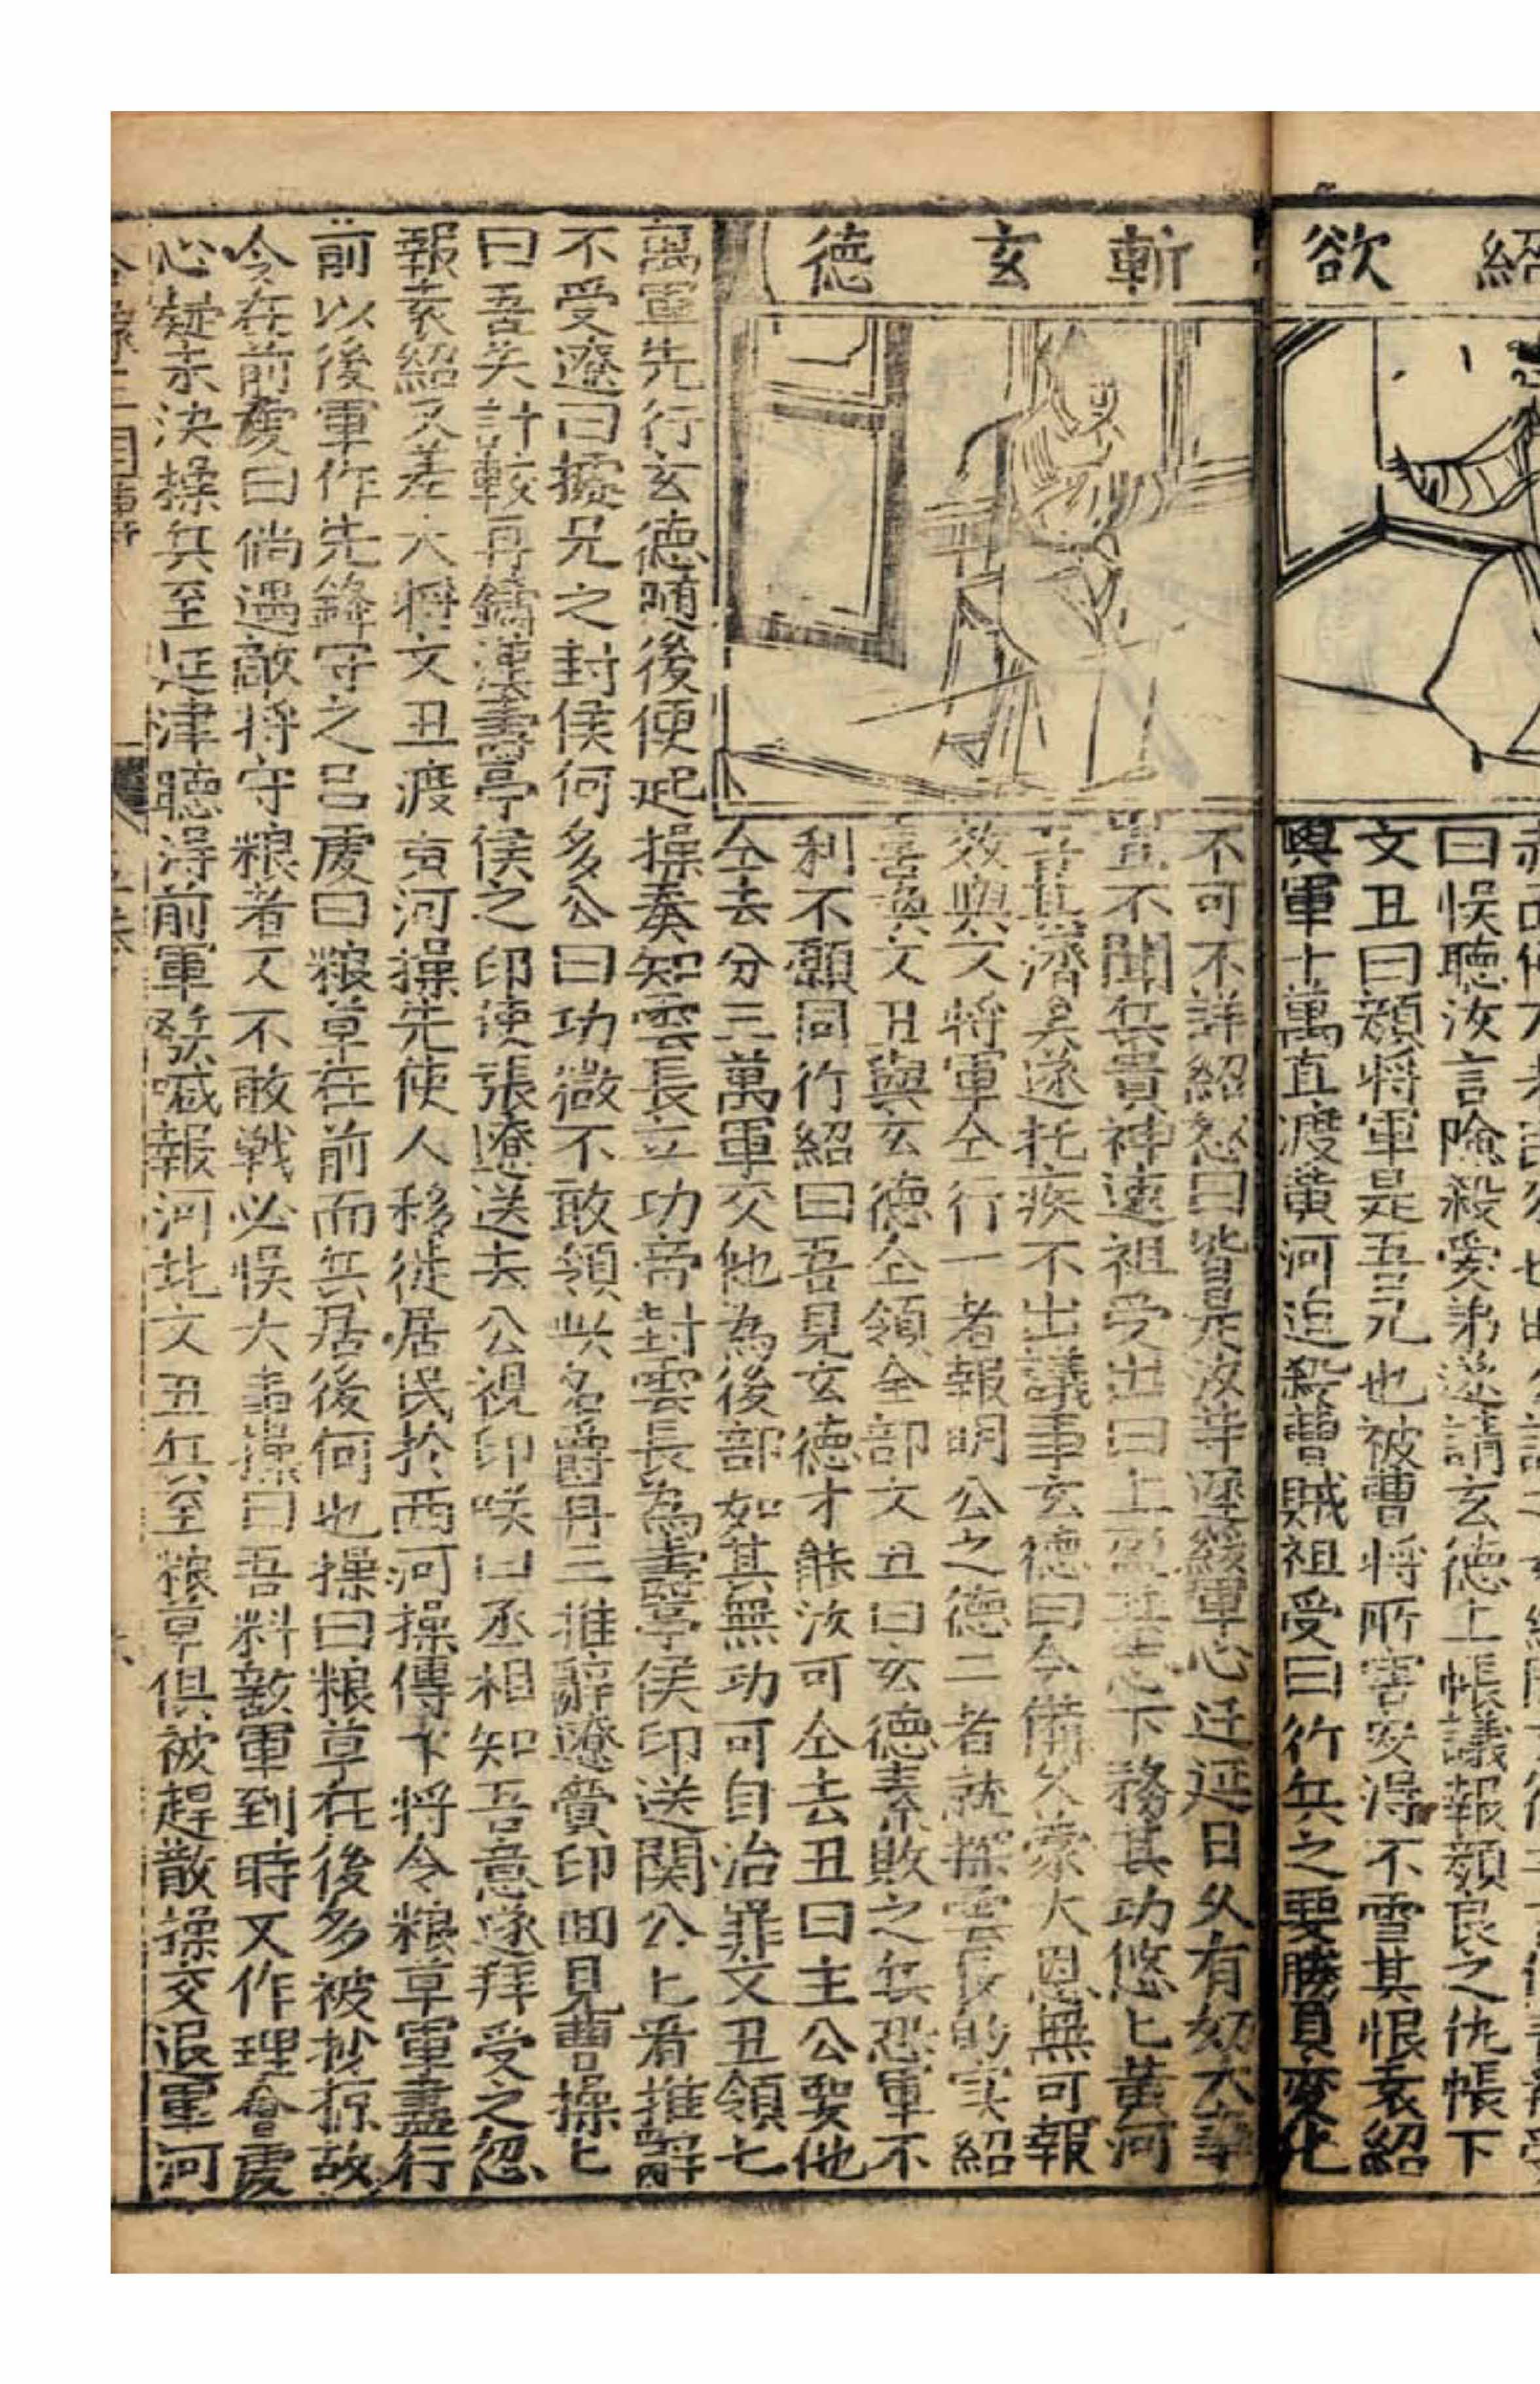 紹欲
曰悮聽汝言險殺愛弟遂請玄德上帳議報顔良之仇帳下
文丑曰顔将軍是吾兄也被曹将所害安淂不雪其恨袁紹
與軍十萬直渡黃河追殺曹賊祖受曰行兵之要勝負变化
斬玄德
不可不詳紹怒曰皆是汝等遲緩軍心迁延日久有妨大事
豈不聞兵貴神速祖受出曰上盈其志下務其功悠匕黃河
吾其濟矣遂托疾不出議事玄德曰今備久蒙大恩無可報
效與文将軍仝行一者報明公之德二者就探雲長的实紹
喜喚文丑與玄德仝領全部文丑曰玄德素敗之兵恐軍不
利不願同行紹曰吾見玄德才能汝可仝去丑曰主公要他
仝去分三萬軍交他為後部如其無功可自治罪文丑領七
萬軍先行玄德随後便起操奏知雲長立功帝封雲長為壽亭侯印送関公匕看推辭
不受遼曰擬兄之封侯何多公曰功微不敢領此名爵再三推辭遼賫印囬見曹操匕
曰吾失計較再鑄漢壽亭侯之印使張遼送去公視印咲曰丞相知吾意遂拜受之忽
報袁紹又差大将文丑渡黃河操先使人移徙居民扵西河操傳下将令粮草軍盡行
前以後軍作先鋒守之吕虔曰粮草在前而兵居後何也操曰粮草在後多被抄掠故
令在前虔曰倘遇敵将守粮者又不敢戦必悮大事操曰吾料敵軍到時又作理會虔
心疑未决操兵至延津聽淂前軍發喊報河北文丑兵至粮草俱被趕散操交退軍河